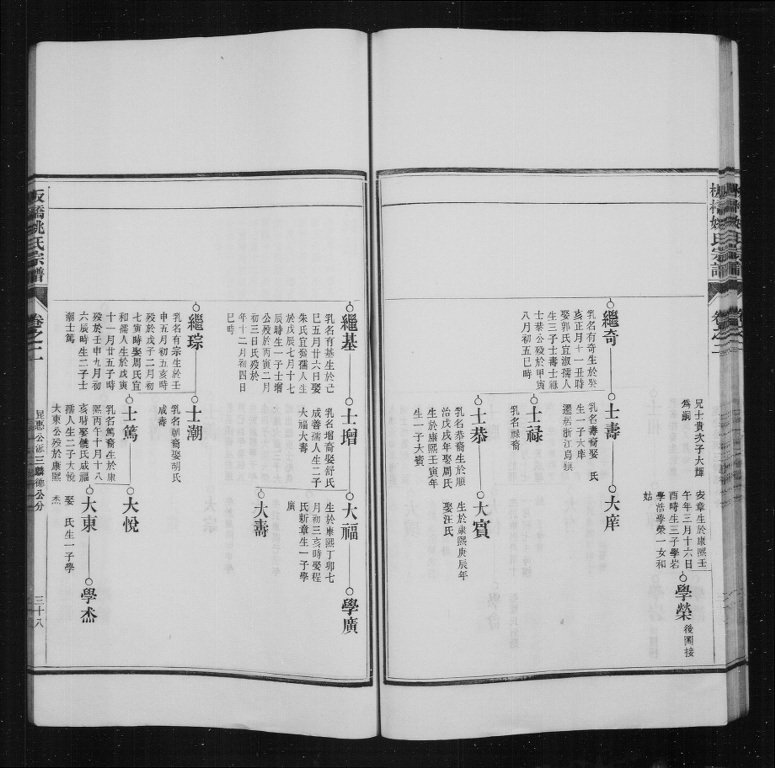 兄士貴次子大輝
爲嗣
安章生於康熙壬
午年三月十六日
酉時生三子學岩
學浩學榮一女和
姑
學榮
後圖接
繼奇
乳名有奇生於癸
亥正月十一丑時
娶郭氏宜淑孺人
生三子士壽士祿
士恭公殁於甲寅
八月初五巳時
士壽
乳名壽裔娶 氏
生一子大庠
遷居浙江烏鎮
大庠
士禄
乳名顯裔
士恭
乳名恭裔生於順
治戊戌年娶周氏
生於康熙壬寅年
生一子大賓
大賓
生於康熙庚辰年
娶汪氏
繼基
乳名有基生於己
巳五月廿六日娶
朱氏宜裔孺人生
於戊辰七月十七
辰時生一子士增
公殁於丙寅二月
初三日氏殁於
年十二月初四日
巳時
士增
乳名增裔娶舒氏
成善孺人生二子
大福大壽
大福
生於康熙丁卯七
月初三亥時娶程
氏新章生一子學
廣
學廣
大壽
繼琮
乳名有宗生於壬
申五月初五亥時
殁於戊子二月初
七寅時娶周氏宜
和孺人生於戊寅
十一月廿五子時
殁於壬申九月初
六辰時生二子士
潮士篤
士潮
乳名朝裔娶胡氏
成壽
士篤
乳名篤裔生於康
熙丙午十月十八
亥時娶饒氏成福
孺人生二子大悅
大東公殁於康熙
大悅
大東
娶 氏生一子學
杰
學杰
板橋姚氏宗譜
卷之十一
三十八